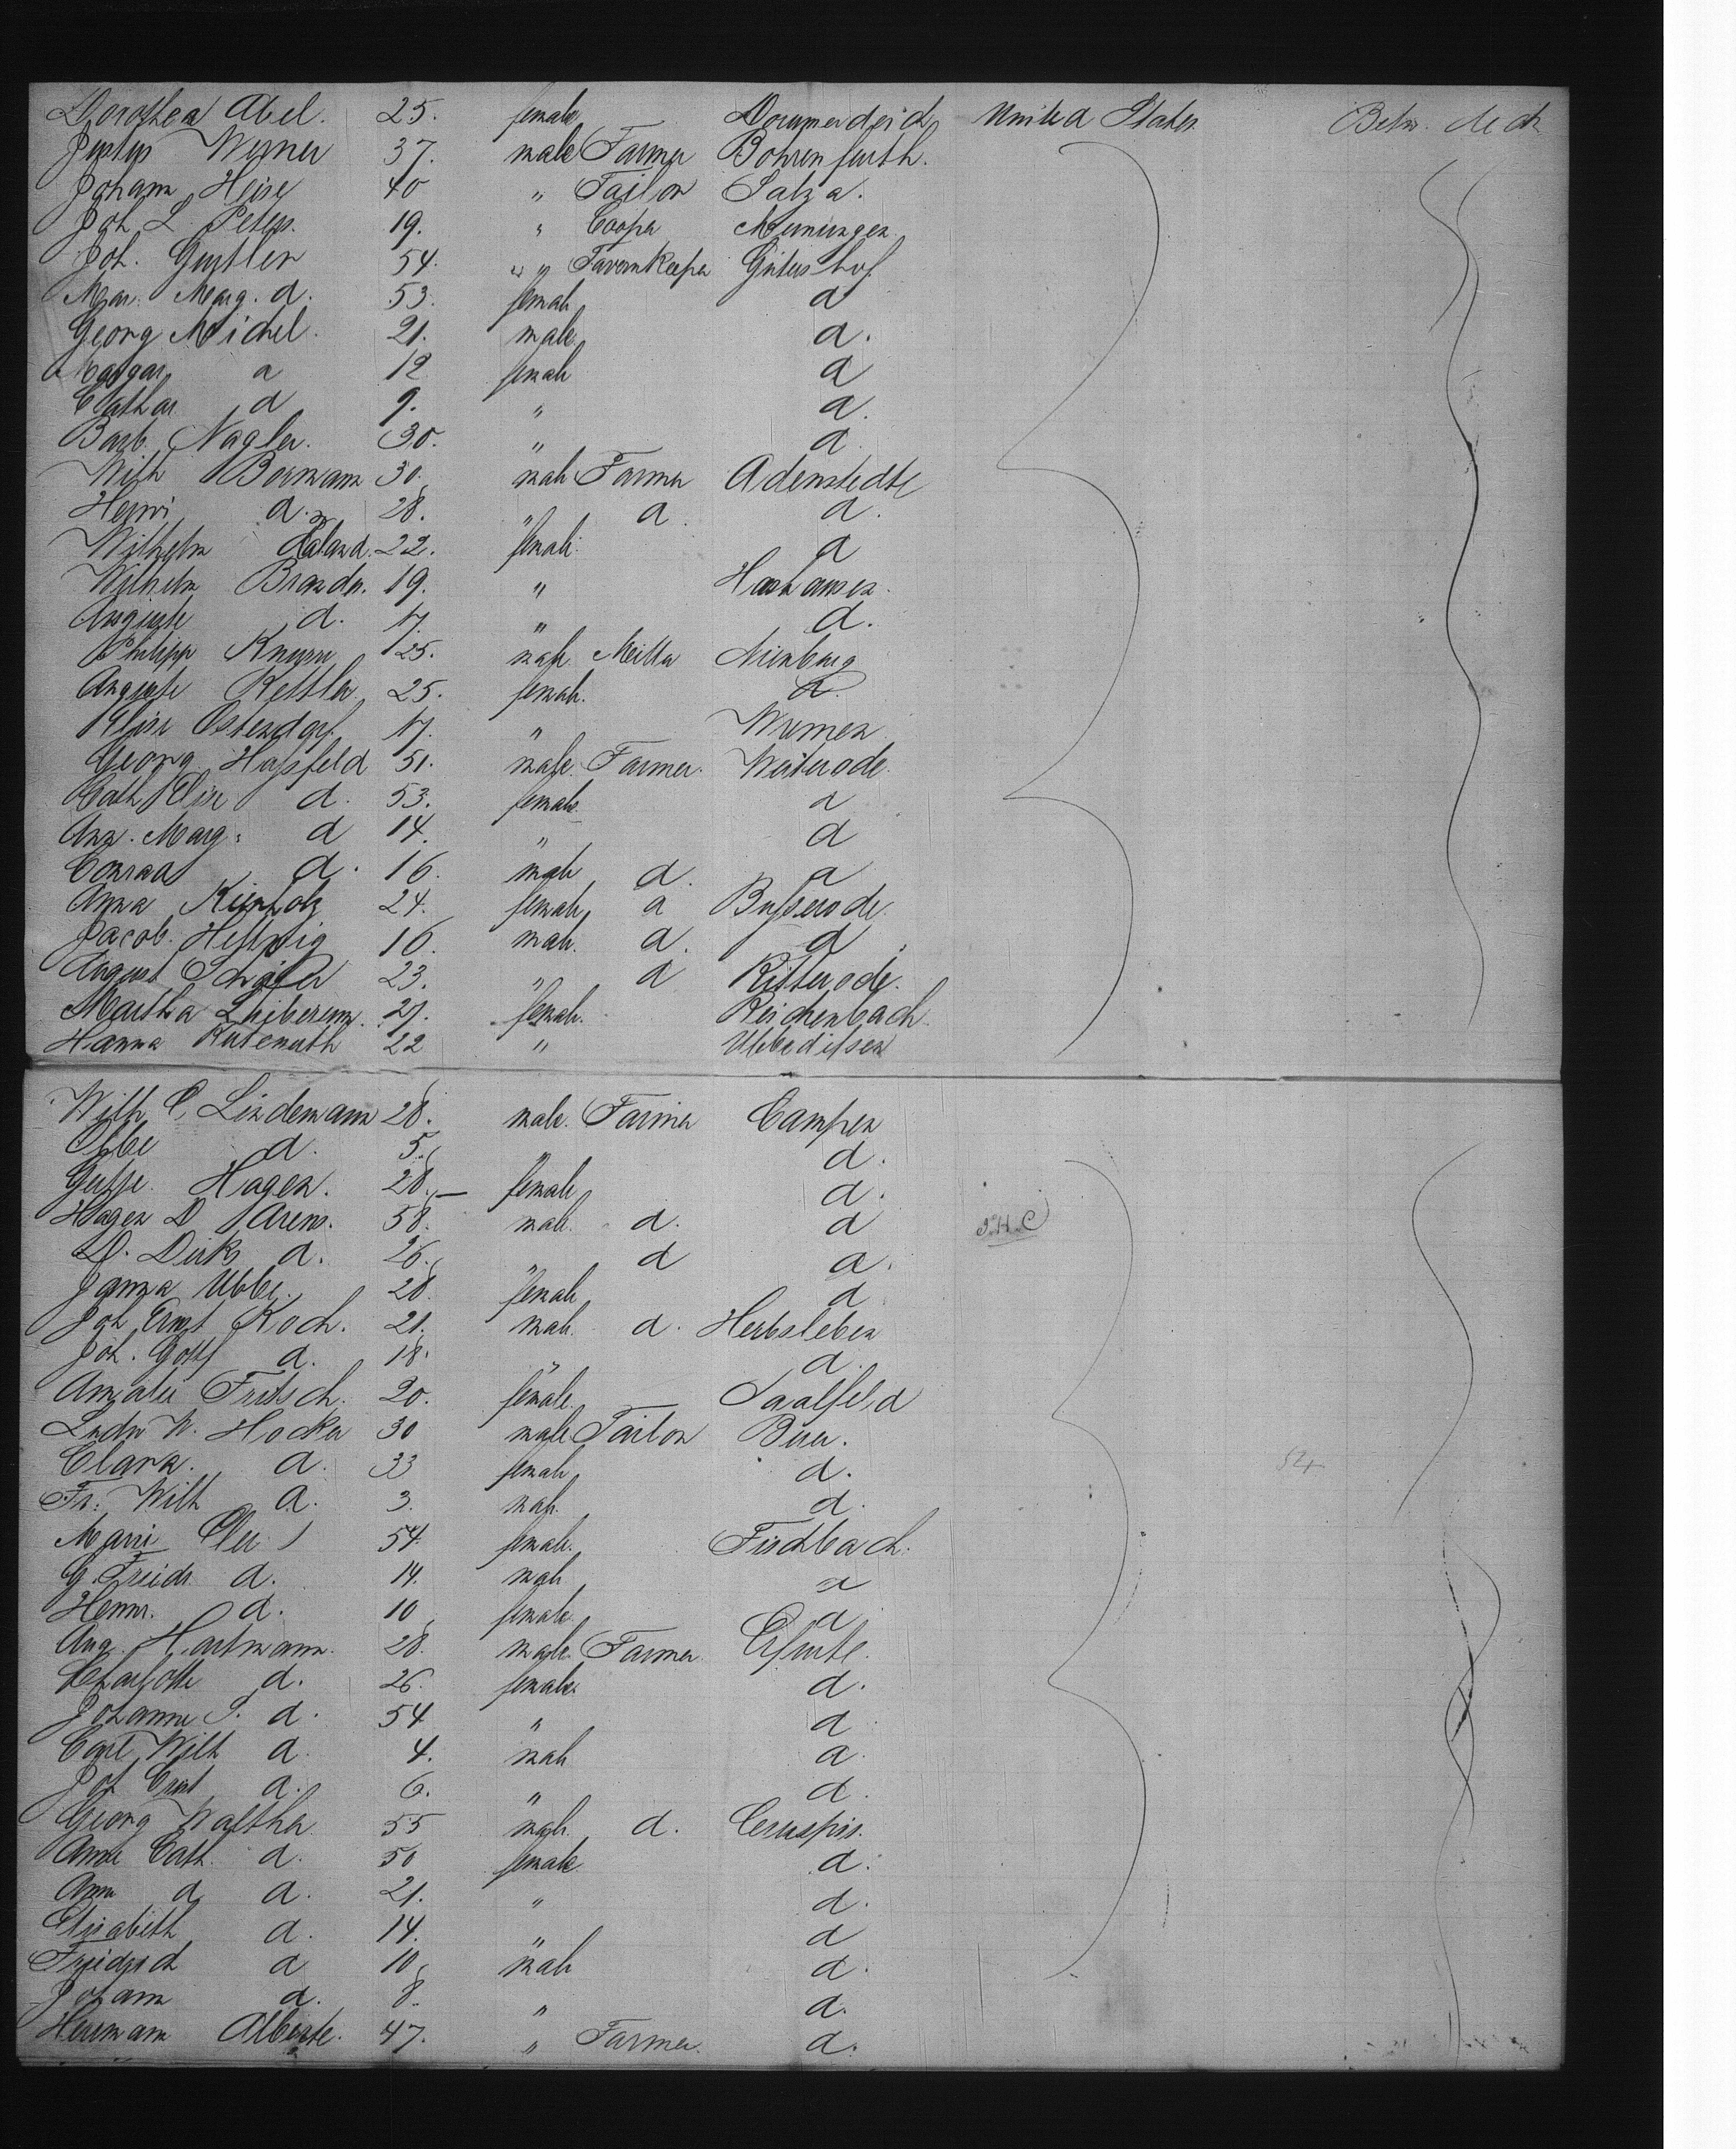 Dorothea Abel. 25. female United States Betw. deck
Justus Werner 37. male Farmer Bohrenfurth.
Johann Heise 40 " Tailor Salza.
Joh L Peters. 19. " Cooper
Joh. 54. " Tavernkeeper
Mar. Marg. d. 53. female d
Georg Michel. 21. male d.
Margar. d 12 female d
Cathar d 9. " d.
Barb. Nagler. 30. " d
Wilh Bormann 30. male Farmer Adenstedt
Henri d. 28. " d. d.
Wilhelm 22. female d
Wilhelm Brandes. 19. "
Auguste d. 17. " d.
Philipp 25. male Miller Nienburg
Auguste Kettler 25. female. d.
Elise Ostendorf. 17. " Wremen
Georg Hassfeld 51. male Farmer. Weiterode.
Cath Elise d. 53. female d
Ann. Marg. d 14. " d
Conrad d. 16. male d. d
Anna 24. female d
Jacob. 16. male. d. d
August Schäfer 23. " d
Martha 27. female. Reichenbach
Hanna 22 "
Wilh. C. Lindemann 28. male. Farmer Campen
Ubbe d. 5. " d.
Hagen. 28. female d.
Hagen D Arens. 58. male. d. d
D. Dirks d. 26. " d d.
Janna Ubbe. 28. female d
Joh Ernst Koch. 21. male. d. Herbsleben
Joh. Gottf d. 18. " d.
Amalie Fritsch. 20. female. Saalfeld
Ludw W. Hocker 30 male Tailor
Clara. d. 33 female d.
Fr. Wilh d. 3. male. d.
Marie 54. female. Fischbach.
G. Friedr. d. 14. male d
Henr. d. 10 female d
Aug. Hartmann. 28. male Farmer
Charlotte d. 26. female d.
Johanne S. d. 54 " d
Carl Wilh d. 4. male d.
Joh Ernst d. 6. " d.
Georg Walther 55 male d.
Anna Cath. d. 50 female d.
Anna d d. 21. " d.
Elisabeth d. 14. " d
Friedrich d 10 male d.
Johann d. 8. " d.
Hermann 47. " Farmer. d.